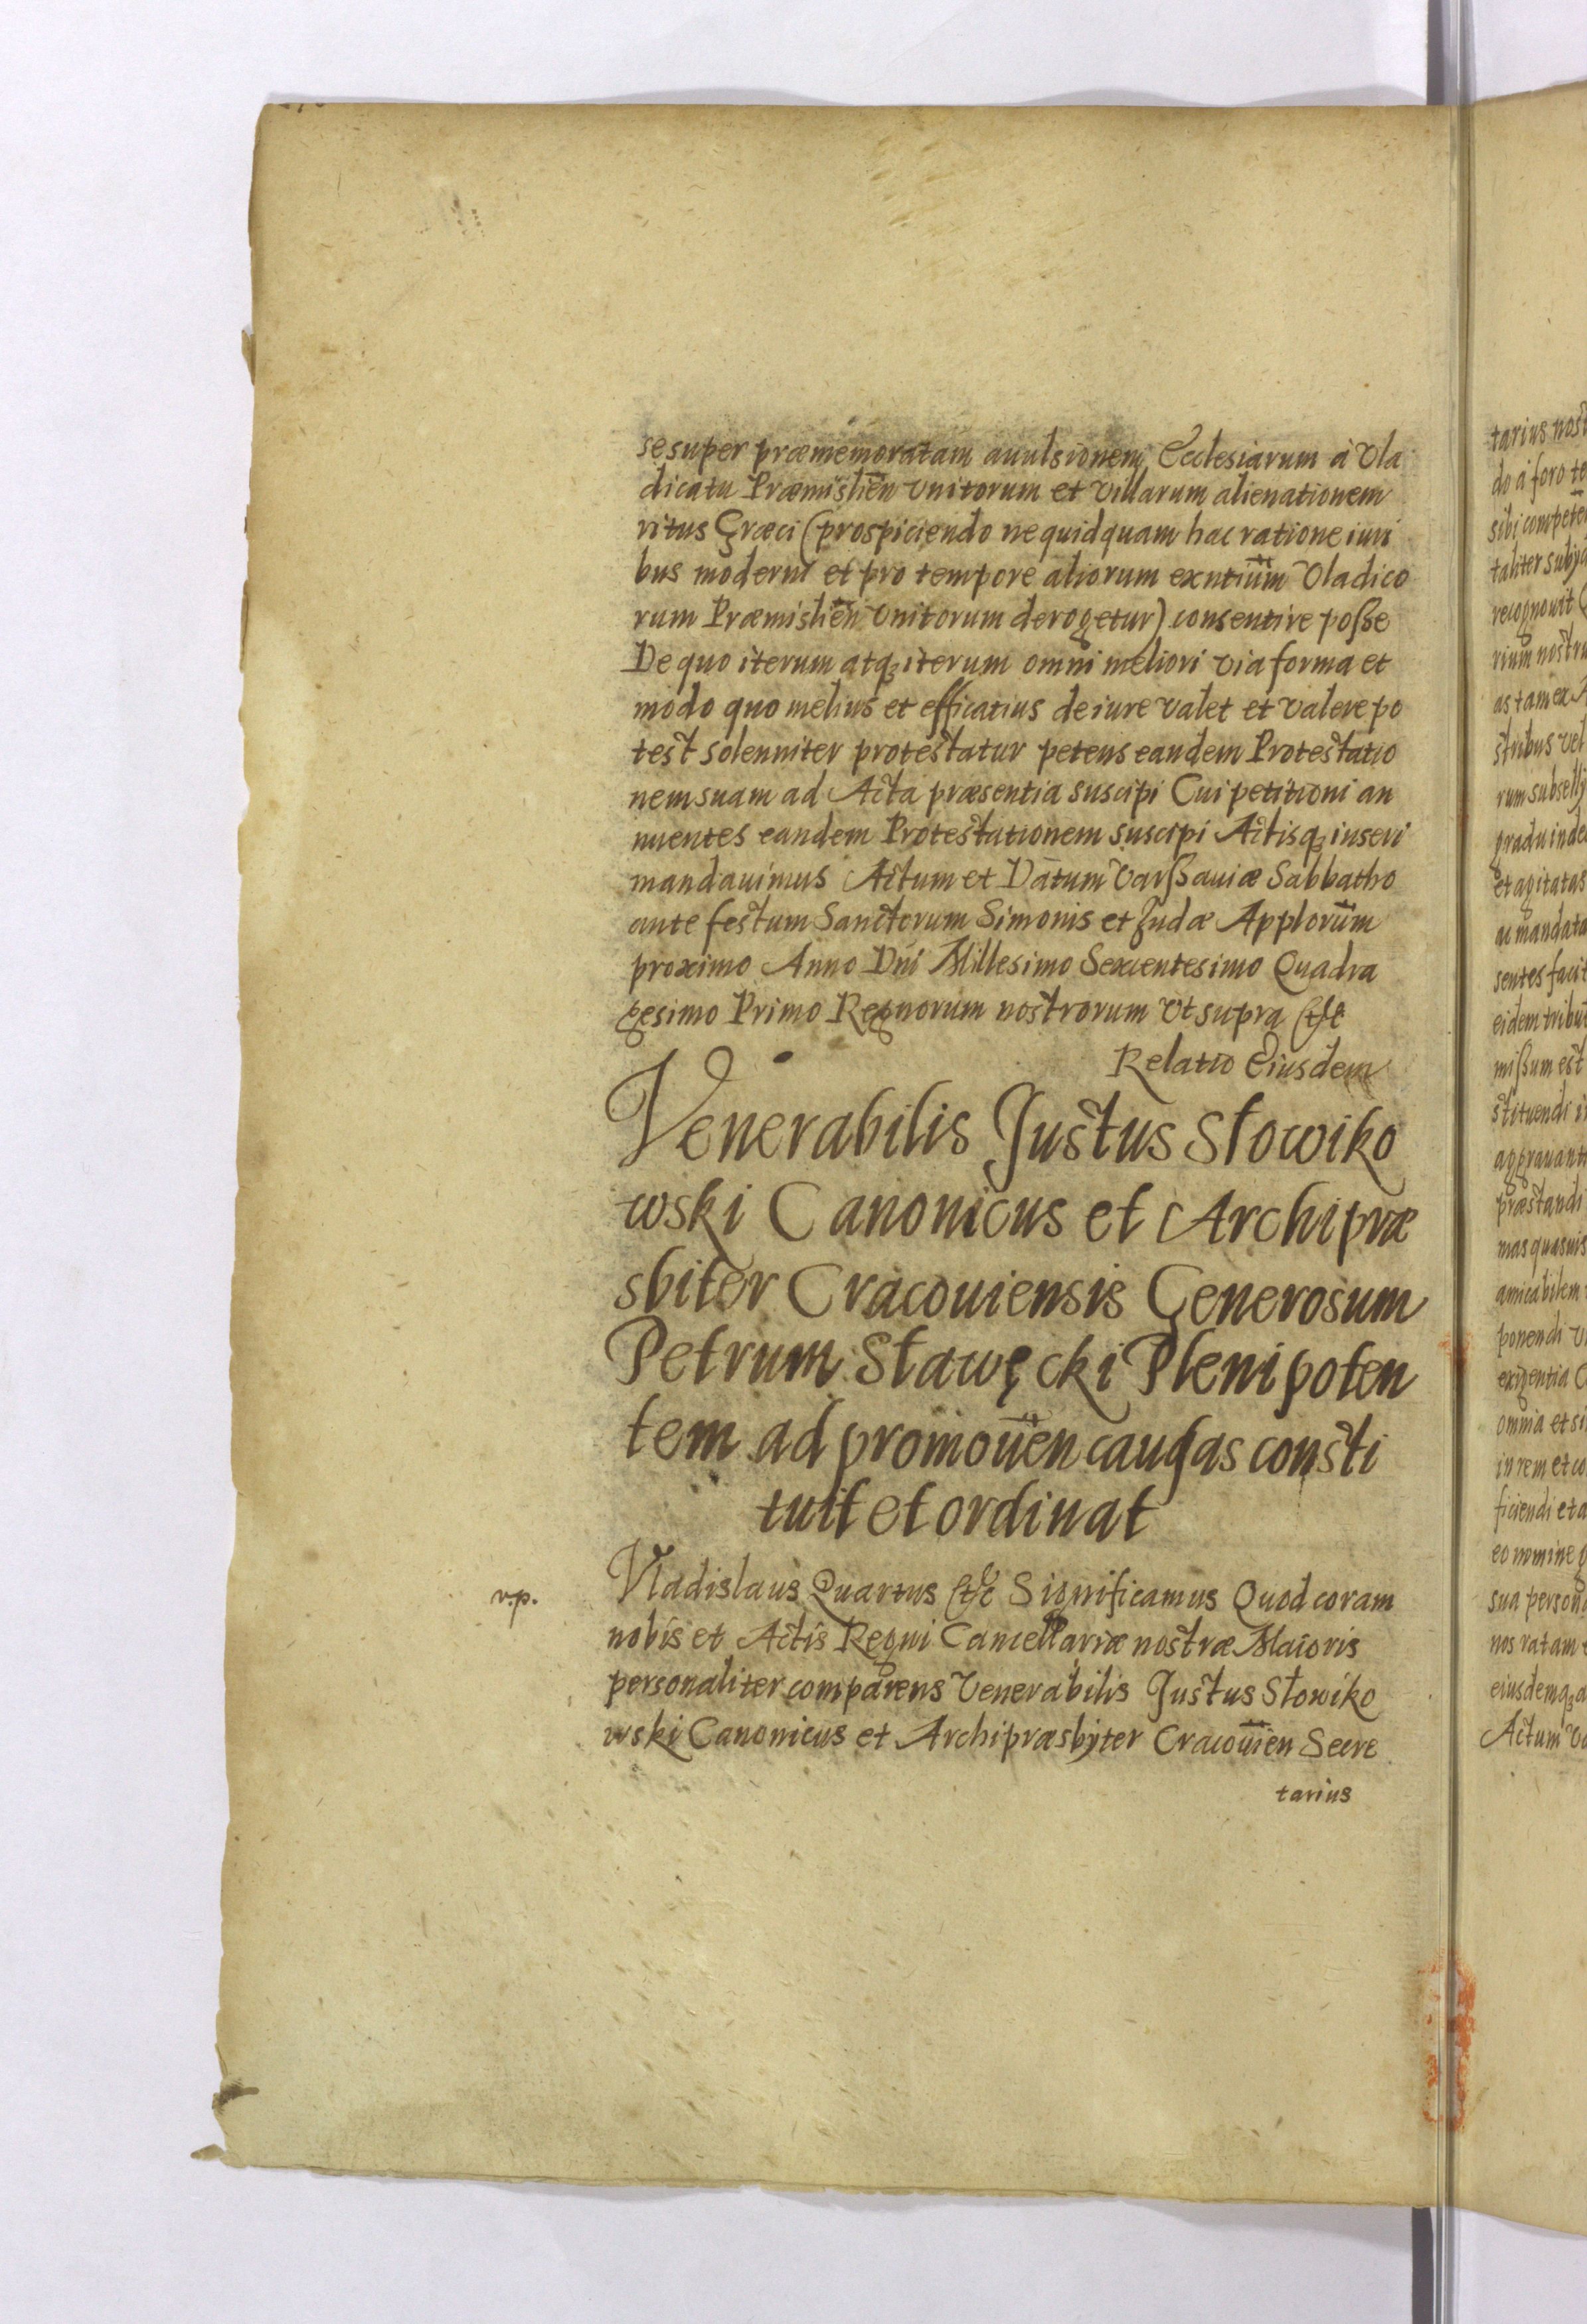 se super præmemoratam auulsionem Ecclesiarum à Vla
dicatu Præmislien̄ Vnitorum et Villarum alienationem
ritus Græci (prospiciendo ne quidquam hac ratione iuri
bus moderni et pro tempore aliorum exn̄tium Vladico
rum Præmislien̄ Vnitorum derogetur) consentire poße
De quo iterum atqꝫ iterum omni meliori via forma et
modo quo melius et efficatius de iure valet et valere po
test solenniter protestatur petens eandem Protestatio
nem suam ad Acta præsentia suscipi Cui petitioni an
nuentes eandem Protestationem suscipi Actisqꝫ inseri
mandauimus Actum et Datum Varßauiæ Sabbatho
ante festum Sanctorum Simonis et Judæ Applorum̄
proximo Anno Dn̄i Millesimo Sexcentesimo Quadra
gesimo Primo Regnorum nostrorum Vt supra &c
Relatio Eiusdem
Venerabilis Justus Słowiko
wski Canonicus et Archipræ
sbiter Cracouiensis Generosum
Petrum Sławęcki Plenipoten
tem ad promouen̄ causas consti
tuit et ordinat
v.p.
Vladislaus Quartus &c Significamus Quod coram
nobis et Actis Regni Cancellariæ nostræ Maioris
personaliter comparens Venerabilis Justus Słowiko
wski Canonicus et Archipræsbyter Cracouien̄ Secre
tarius
tarius
do à foro
taliter
recognouit
as tam ex
stribus vel
et agitatas
sentes
eidem
mißum est
stituendi
præstandi
mas quasuis
amicabilem
ponendi
exigentia
omnia et
in rem et
ficiendi et
eo nomine
sua
nos ratam
eiusdemqꝫ
Actum